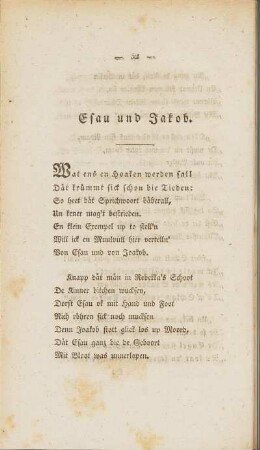 Esau und Jakob.
Wat ens en Hoaken werden sall
Dät krümmt sick schon bie Tieden:
So heet dät Sprichwoort öäberall,
Un kener mag't bestrieden.
En klein Exempel up to stell'n
Will ick en Mundvull hier vertelln'
Von Esau und von Joakob.
Knapp dät män in Rebekka's Schoot
De Kinner bitchen wucksen,
Dorft Esau ok mit Hand und Foot
Sich röhren sick noch mucksen
Denn Joakob stott glick los up Moord,
Dät Esau ganz bie de Geboort
Mit Bloat was unnerlopen.